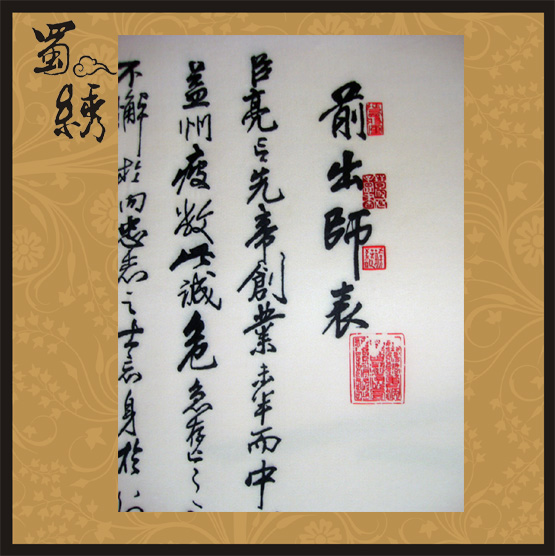 蜀綉
前出師表
臣亮言先帝創業未半而中
益州疲敝此誠危急存亡之
不懈於內忠志之士忘身於